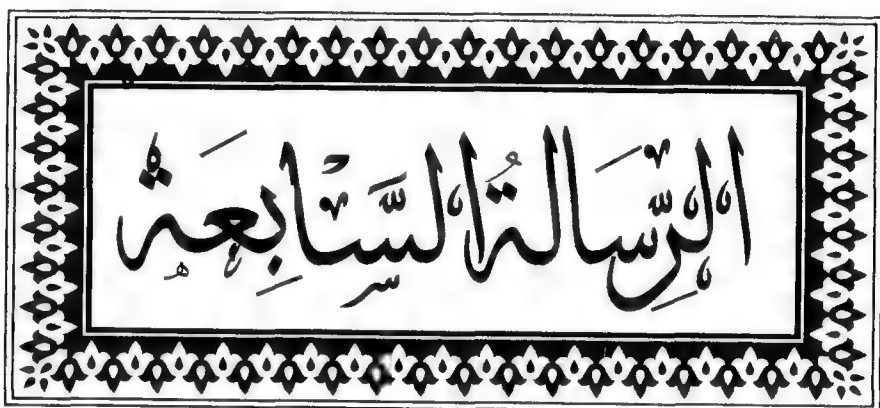 الرِّسَالَةُ السَّابِعَةُ